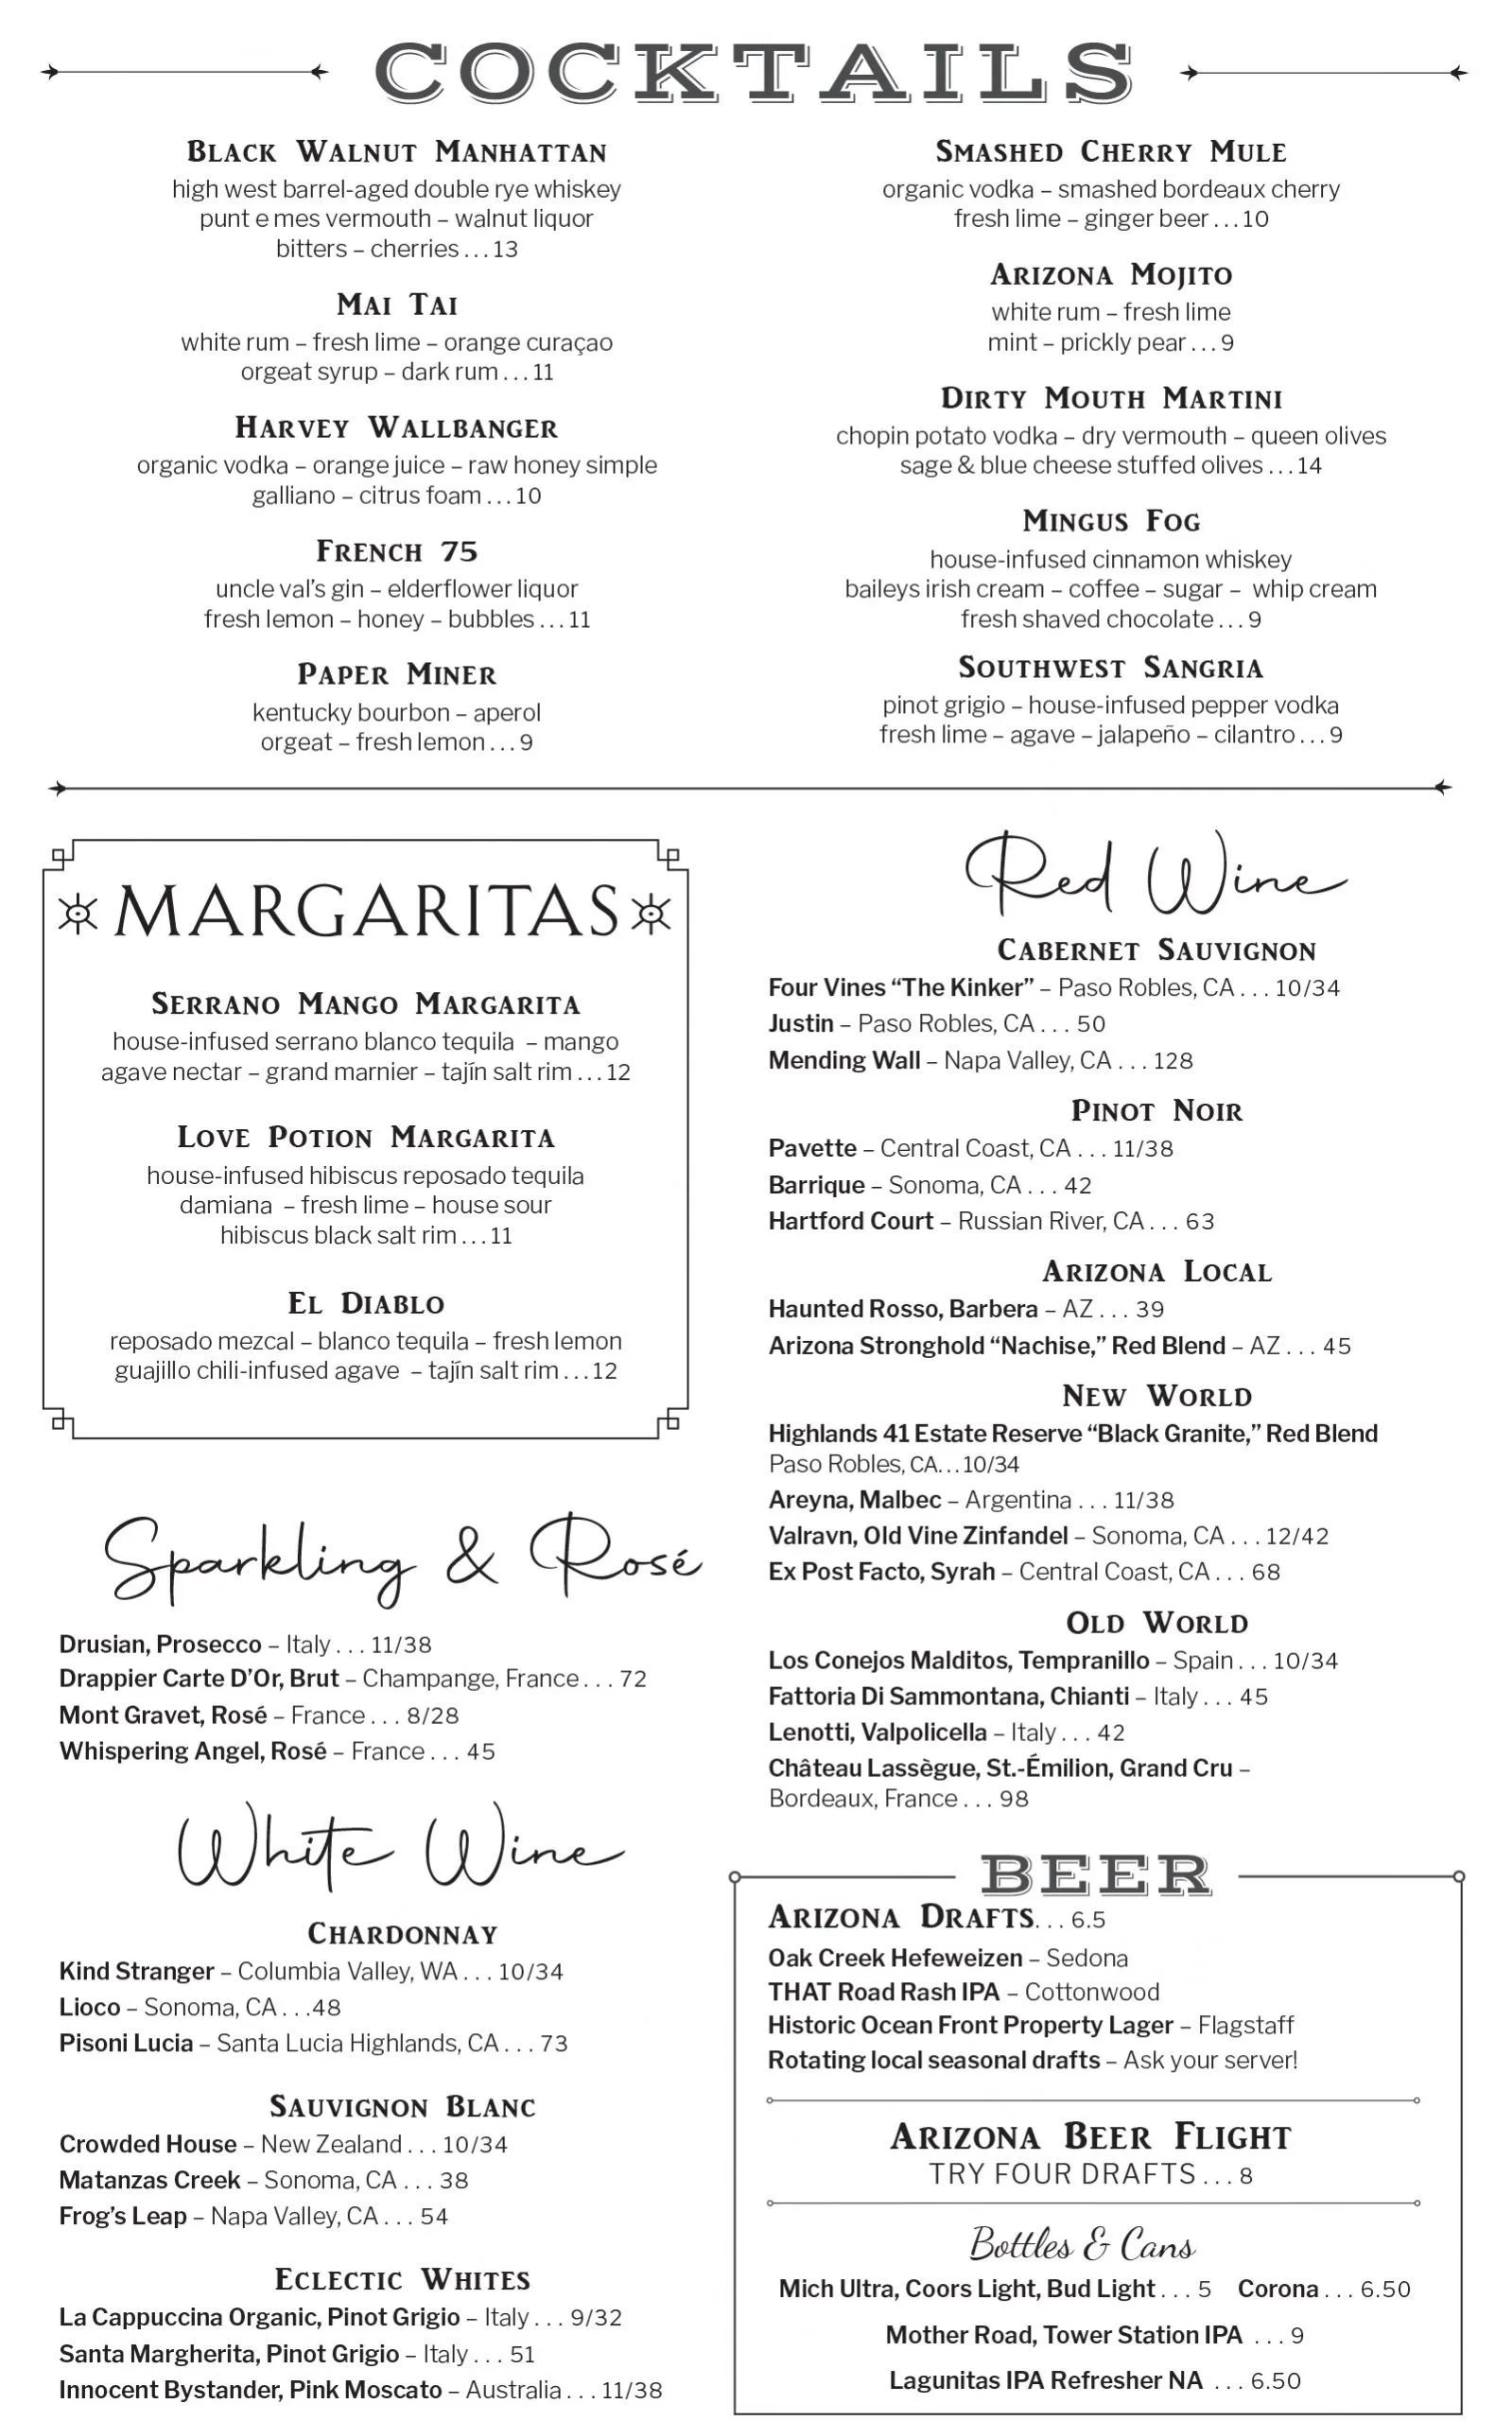 COCKTAILS
BLACK WALNUT MANHATTAN
high west barrel-aged double rye whiskey
punt e mes vermouth – walnut liquor
bitters – cherries . . . 13
MAI TAI
white rum – fresh lime – orange curaçao
orgeat syrup – dark rum . . . 11
HARVEY WALLBANGER
organic vodka – orange juice – raw honey simple
galliano – citrus foam . . . 10
FRENCH 75
uncle val's gin – elderflower liquor
fresh lemon – honey – bubbles . . . 11
PAPER MINER
kentucky bourbon – aperol
orgeat – fresh lemon . . . 9
SMASHED CHERRY MULE
organic vodka – smashed bordeaux cherry
fresh lime – ginger beer . . . 10
ARIZONA MOJITO
white rum – fresh lime
mint – prickly pear . . . 9
DIRTY MOUTH MARTINI
chopin potato vodka – dry vermouth – queen olives
sage & blue cheese stuffed olives . . . 14
MINGUS FOG
house-infused cinnamon whiskey
baileys irish cream – coffee – sugar – whip cream
fresh shaved chocolate . . . 9
SOUTHWEST SANGRIA
pinot grigio – house-infused pepper vodka
fresh lime – agave – jalapeño – cilantro . . . 9
MARGARITAS
SERRANO MANGO MARGARITA
house-infused serrano blanco tequila – mango
agave nectar – grand marnier – tajín salt rim . . . 12
LOVE POTION MARGARITA
house-infused hibiscus reposado tequila
damiana – fresh lime – house sour
hibiscus black salt rim . . . 11
EL DIABLO
reposado mezcal – blanco tequila – fresh lemon
guajillo chili-infused agave – tajín salt rim . . . 12
Sparkling & Rosé
Drusian, Prosecco – Italy . . . 11/38
Drappier Carte D'Or, Brut – Champange, France . . . 72
Mont Gravet, Rosé – France . . . 8/28
Whispering Angel, Rosé – France . . . 45
White Wine
CHARDONNAY
Kind Stranger – Columbia Valley, WA . . . 10/34
Lioco – Sonoma, CA . . .48
Pisoni Lucia – Santa Lucia Highlands, CA . . . 73
SAUVIGNON BLANC
Crowded House – New Zealand . . . 10/34
Matanzas Creek – Sonoma, CA . . . 38
Frog's Leap – Napa Valley, CA . . . 54
ECLECTIC WHITES
La Cappuccina Organic, Pinot Grigio – Italy . . . 9/32
Santa Margherita, Pinot Grigio – Italy . . . 51
Innocent Bystander, Pink Moscato – Australia . . . 11/38
Red Wine
CABERNET SAUVIGNON
Four Vines “The Kinker” – Paso Robles, CA . . . 10/34
Justin – Paso Robles, CA . . . 50
Mending Wall – Napa Valley, CA . . . 128
PINOT NOIR
Pavette – Central Coast, CA . . . 11/38
Barrique – Sonoma, CA . . . 42
Hartford Court – Russian River, CA . . . 63
ARIZONA LOCAL
Haunted Rosso, Barbera – AZ . . . 39
Arizona Stronghold “Nachise,” Red Blend – AZ . . . 45
NEW WORLD
Highlands 41 Estate Reserve “Black Granite,” Red Blend
Paso Robles, CA. . . 10/34
Areyna, Malbec – Argentina . . . 11/38
Valravn, Old Vine Zinfandel – Sonoma, CA . . . 12/42
Ex Post Facto, Syrah – Central Coast, CA . . . 68
OLD WORLD
Los Conejos Malditos, Tempranillo – Spain . . . 10/34
Fattoria Di Sammontana, Chianti – Italy . . . 45
Lenotti, Valpolicella – Italy . . . 42
Château Lassègue, St.-Émilion, Grand Cru –
Bordeaux, France . . . 98
BEER
ARIZONA DRAFTS. . . 6.5
Oak Creek Hefeweizen – Sedona
THAT Road Rash IPA – Cottonwood
Historic Ocean Front Property Lager – Flagstaff
Rotating local seasonal drafts – Ask your server!
ARIZONA BEER FLIGHT
TRY FOUR DRAFTS . . . 8
Bottles & Cans
Mich Ultra, Coors Light, Bud Light . . . 5 Corona . . . 6.50
Mother Road, Tower Station IPA . . . 9
Lagunitas IPA Refresher NA . . . 6.50